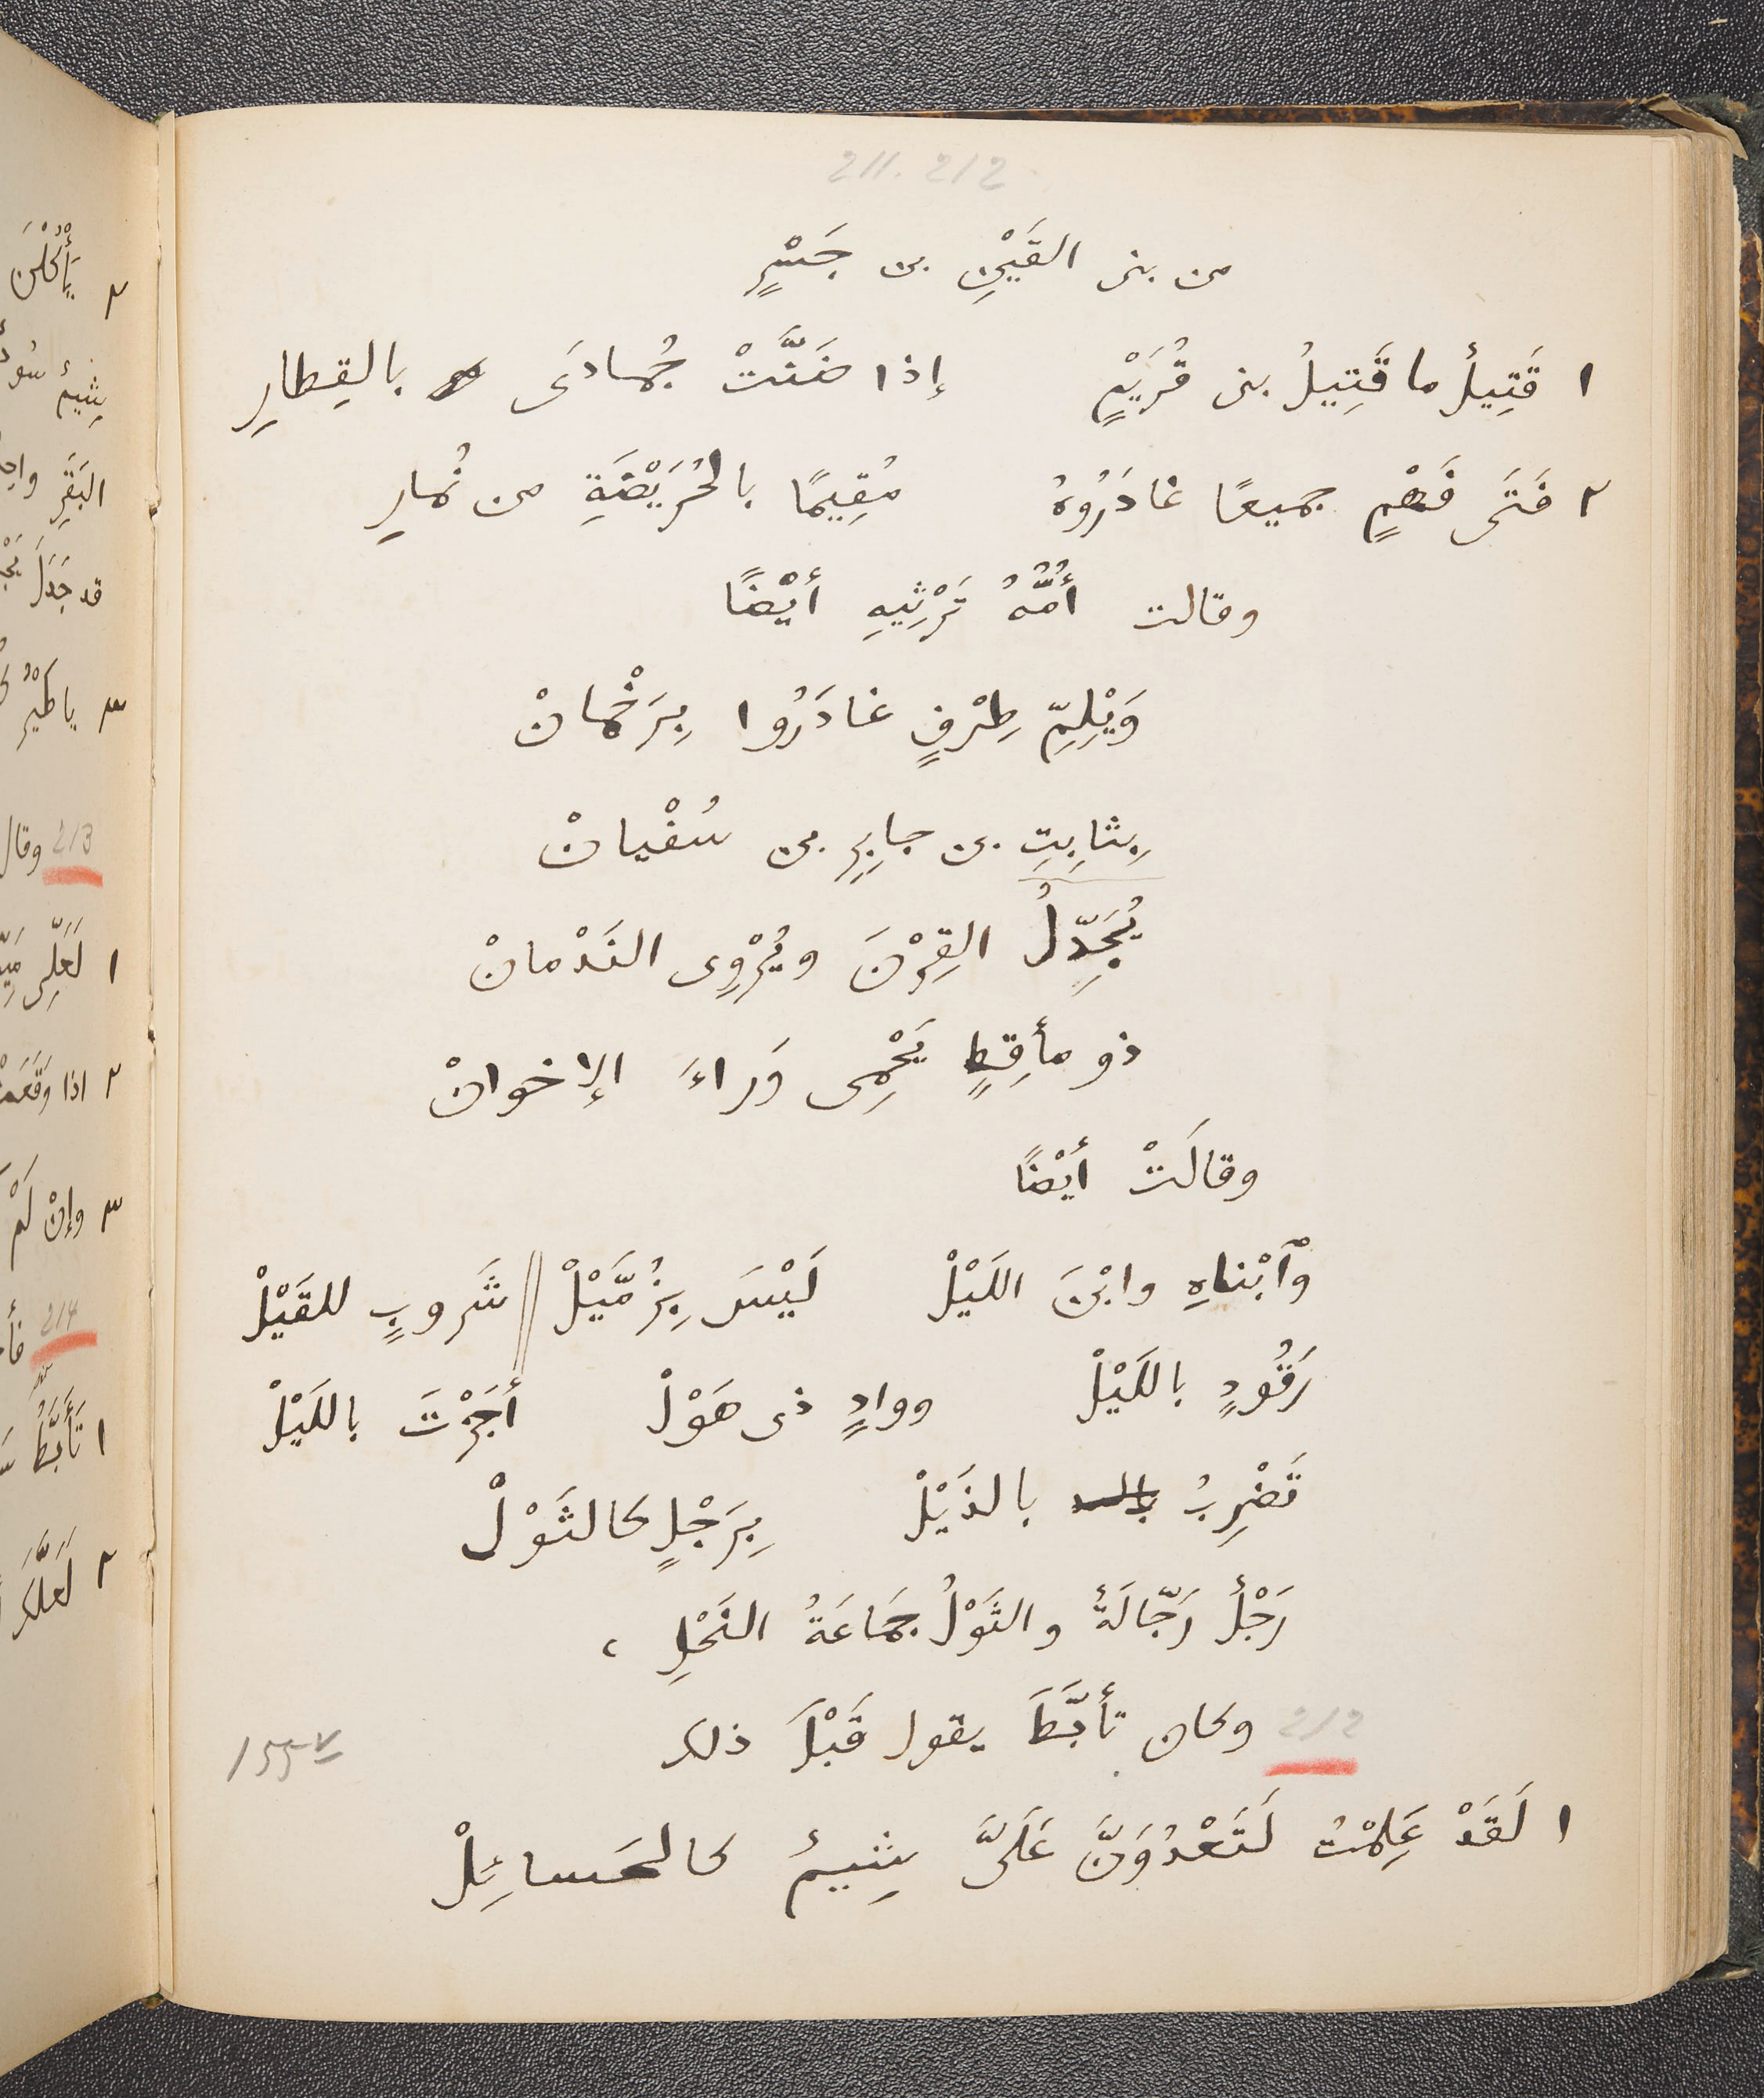 211. 212
من بنى القَيْنِ بن جَسْرٍ
١ قَتِيلٌ ما قَتِيلُ بنى قُرَيْمٍ إذا ضَنَّتْ جُمادَى بالقِطارِ
٢ فَتَى فَهْمٍ جميعًا غادَرُوهُ مُقِيمًا بالحُرَيْضَةِ من نُمارِ
وقالت أُمُّهُ تَرْثِيهِ أيْضًا
وَيْلِمِّ طِرْفٍ غادَرُوا بِرَخْمانْ
بِثابِتِ بن جابِرِ بن سُفْيانْ
يُجَدِّلُ القِرْنَ ويُرْوِى النَدْمانْ
ذو مأقِطٍ يَحْمِى وَراءَ الإخوانْ
وقالَتْ أيْضًا
وٱبْناهِ وابْنَ اللَيْلْ لَيْسَ بِزُمَّيْلْ || شَروبٍ للقَيْلْ
رَقُودٍ باللَيْلْ ووادٍ ذى هَوْلْ أجَزْتَ باللَيْلْ
تَضْرِبُ بالذَيْلْ بِرَجْلٍ كالثَوْلْ
رَجْلٌ رَجّالَةٌ والثَوْلُ جَمَاعَةُ النَحْلِ ،
212 وكان تأبَّطَ يقول قَبْلَ ذلك
١ لَقَدْ عَلِمْتُ لَتَعْدُوَنَّ عَلَىَّ شِيمٌ كالحَسائِلْ
٢ يَأْكُلْنَ
213 وقال
214